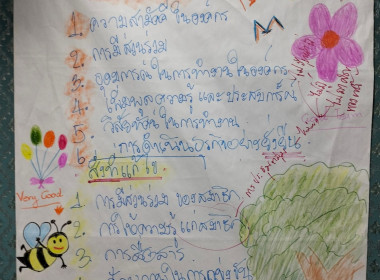 1. ความสามัคคีในองค์กร
2. การมีส่วนร่วม
3. อุดมการณ์ในการทำงานในองค์กร
4. เพิ่มพูลความรู้และประสบการณ์
5. วิสัยทัศน์ในการทำงาน
6. การดำเนินธุรกิจอย่างยั่งยืน
สิ่งที่แก้ไข
1. การมีส่วนร่วมของสมาชิก
2. การให้ความรู้แก่สมาชิก
3. การสื่อสาร
Very Good